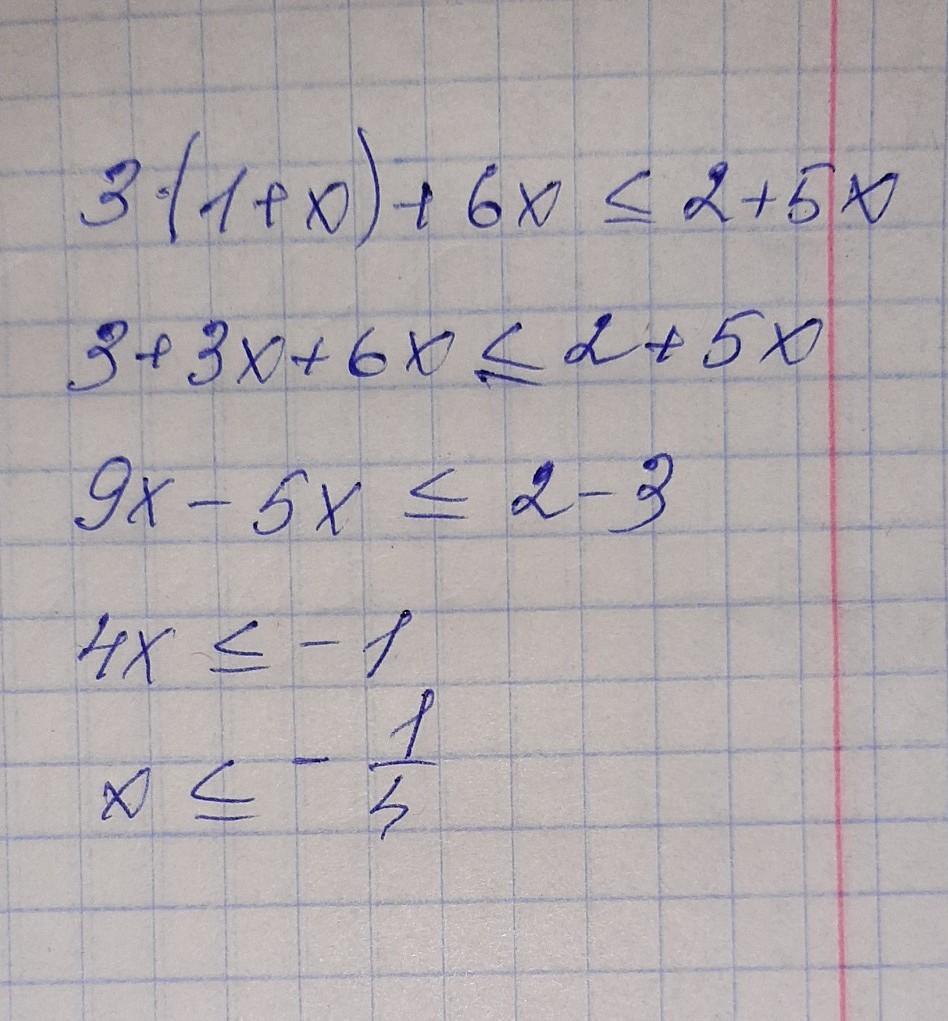 3·(1+x)+6x ≤ 2+5x
3+3x+6x ≤ 2+5x
9x-5x ≤ 2-3
4x ≤ -1
x ≤ -1/4